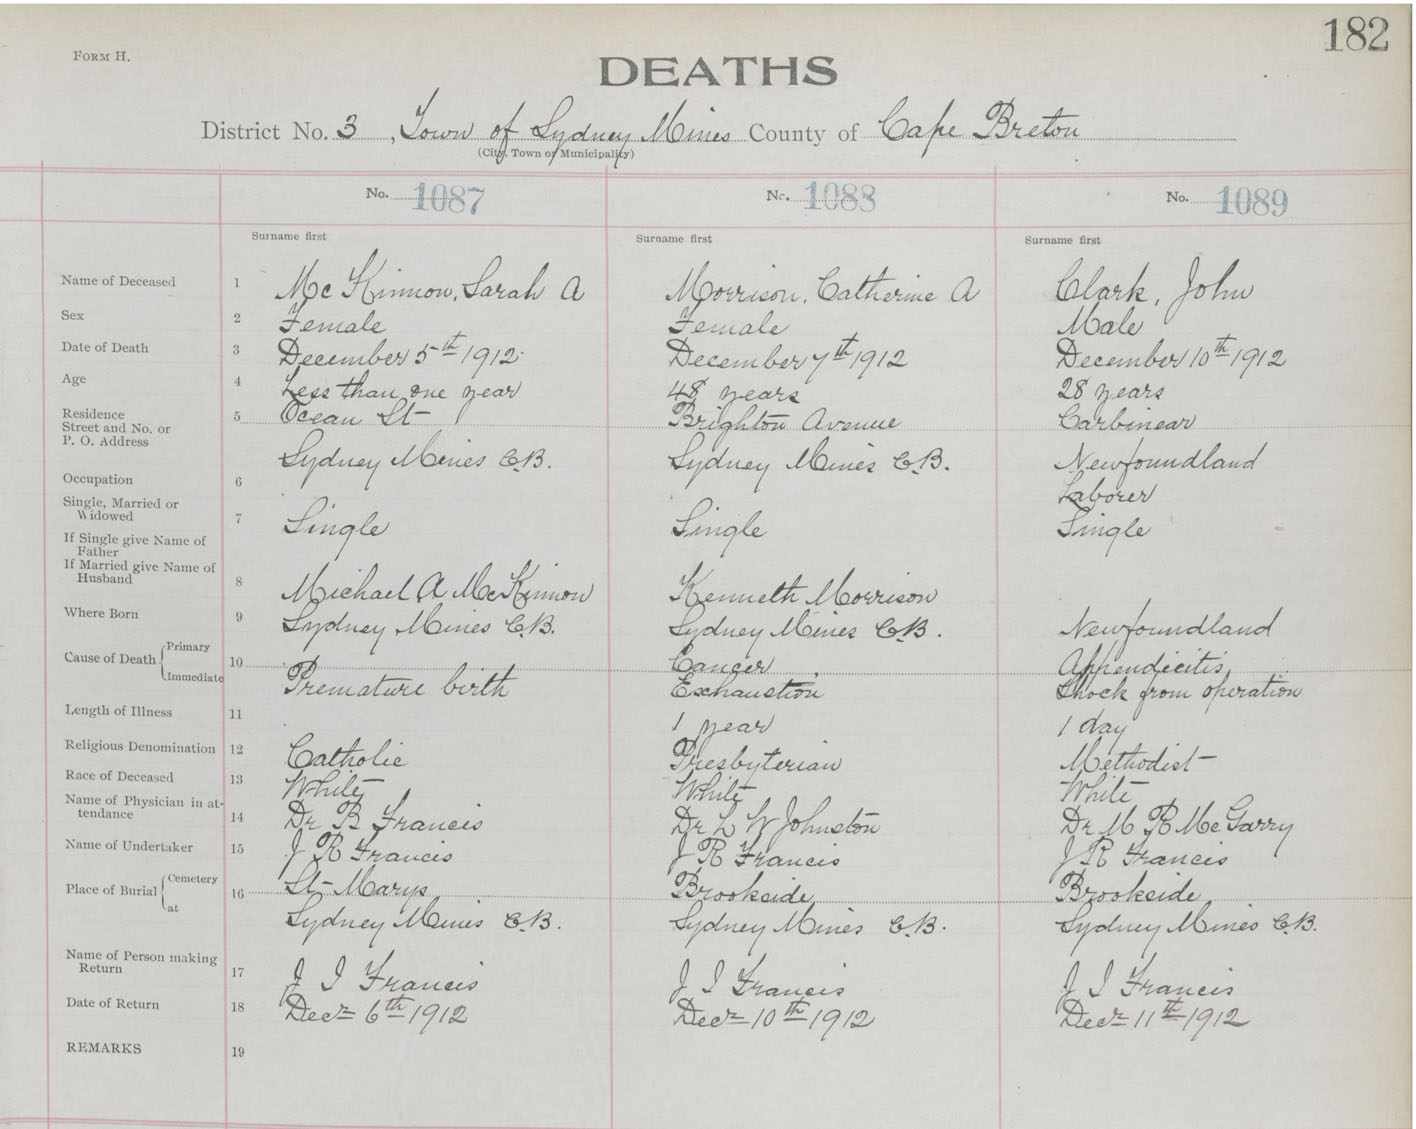 182
FORM H.
DEATHS
District No. 3, Town of Sydney Mines County of Cape Breton
(City, Town or Municipality)
No. 1087 No. 1088 No. 1089
Surname first Surname first Surname first
Name of Deceased 1 McKinnon, Sarah A Morrison, Catherine A Clark, John
Sex 2 Female Female Male
Date of Death 3 December 5th 1912 December 7th 1912 December 10th 1912
Age 4 Less than one year 48 years 28 years
Residence 5 Ocean St Brighton Avenue Carbinear
Street and No. or
P. O. Address Sydney Mines C.B. Sydney Mines C.B. Newfoundland
Occupation 6 Laborer
Single, Married or
Widowed 7 Single Single Single
If Single give Name of
Father
If Married give Name of
Husband 8 Michael A McKinnon Kenneth Morrison
Where Born 9 Sydney Mines C.B. Sydney Mines C.B. Newfoundland
Cause of Death Primary 10 Cancer Appendicitis,
Immediate Premature birth Exhaustion Shock from operation
Length of Illness 11 1 year 1 day
Religious Denomination 12 Catholic Presbyterian Methodist
Race of Deceased 13 White White White
Name of Physician in at-
tendance 14 Dr B Francis Dr L W Johnston Dr M R McGarry
Name of Undertaker 15 J R Francis J R Francis J R Francis
Place of Burial Cemetery 16 St-Marys Brookside Brookside
at Sydney Mines C.B. Sydney Mines C.B. Sydney Mines C.B.
Name of Person making
Return 17 J I Francis J I Francis J I Francis
Date of Return 18 Decr 6th 1912 Decr 10th 1912 Decr 11th 1912
REMARKS 19